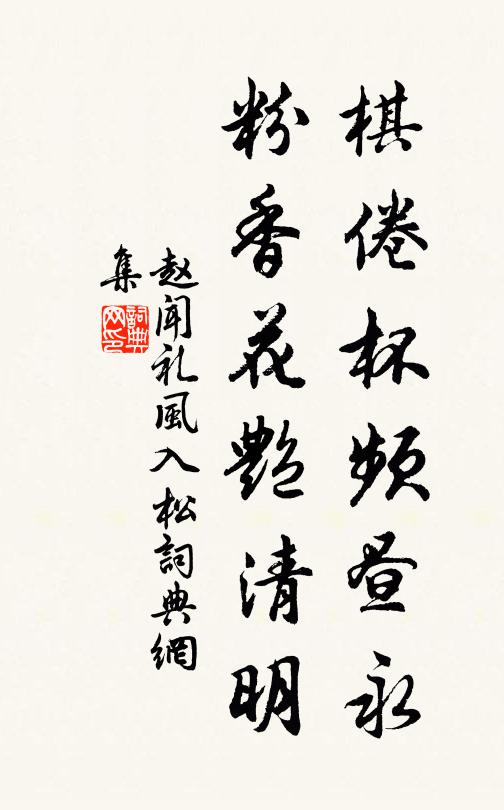 棋倦杯频昼永
粉香花艳清明
赵闻礼風入松詞典網
集
詞典网印